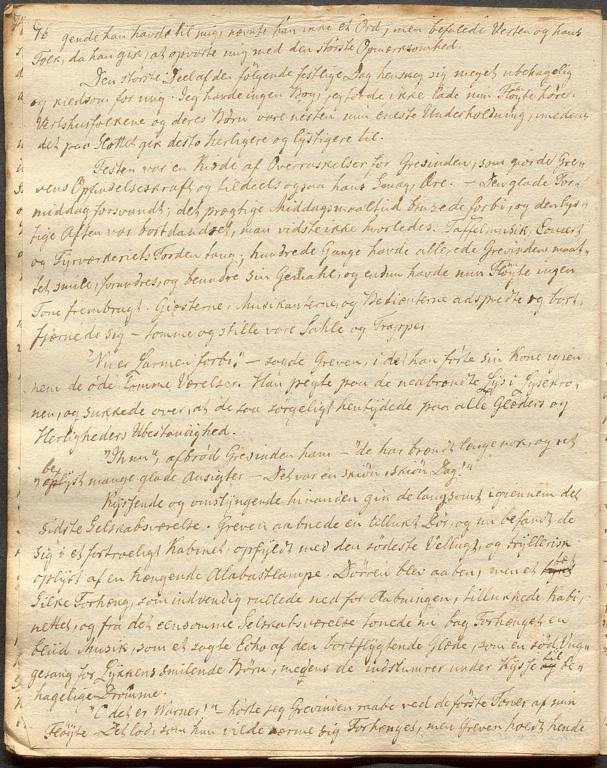 76 gende han havde til mig, nævnte han ikke et Ord, men befalede Verten og hans
Folk, da han gik, at opvarte mig med den største Opmærksomhed.
Den største Deel af den følgende festlige Dag hensneg sig meget ubehagelig
og kiedsom for mig. Jeg havde ingen Bog, jeg torde ikke lade min Fløyte høre.
Vertshusfolkene og deres Børn vare næsten min eneste Underholdning, imedens
det paa Slottet gik desto herligere og lystigere til.
Festen var en Kiæde af Overraskelser for Grevinden, som giorde Gre-
vens Opfindelseskraft og tildeels ogsaa hans Smag, Ære. – Den glade For-
middag forsvandt; det prægtige Middagsmaaltid brusede forbi, og den lys-
tige Aften var bortdandset, man vidste ikke hvorledes. Taffelmusik, Concert
og Fyrværkeriets Torden taug; hundrede Gange havde allerede Grevinden maat-
tet smile, forundres, og beundre sin Gemahl, og endnu havde min Fløyte ingen
Tone frembragt. Giæsterne, Musikanterne, og Betienterne adspredte og bort-
fjærnede sig – tomme og stille vare Sahle og Trapper.
"Nu er Larmen forbi," – sagde Greven, i det han førte sin Kone igien-
nem de øde tomme Værelser. Han pegte paa de nedbrændte Lys i Lysekro-
nen, og sukkede over, at de saa sørgeligt hentydede paa alle Glæders og
Herligheders Ubestandighed.
"Ih nu", afbrød Grevinden ham – "de har brændt længe nok, og
"belyst mange glade Ansigter – Det var en skiøn, skiøn Dag!"
Kyssende og omslyngende hinanden gik de langsomt igiennem det
sidste Selskabsværelse. Greven aabnede en tillukt Dør, og nu befandt de
sig i et fortroeligt Kabinet, opfyldt med den sødeste Vellugt, og tryllerisk
oplyst af en hængende Alabastlampe. Dørren blev aaben, men et let
Silke Forhæng, som indvendig rullede ned for Aabningen, tillukkede Kabi-
nettet, og fra det eensomme Selskabsværelse tonede nu bag Forhænget en
blid Musik, som et sagte Echo af den bortflygtende Glæde, som en sød Vug-
gesang for Lykkens smilende Børn, medens de indslumrer under Kysse til be-
hagelige Drømme.
"O det er Warner!" – hørte jeg Grevinden raabe ved de første Toner af min
Fløyte – Det lod, som hun vilde nærme sig Forhænget, men Greven holdt hende